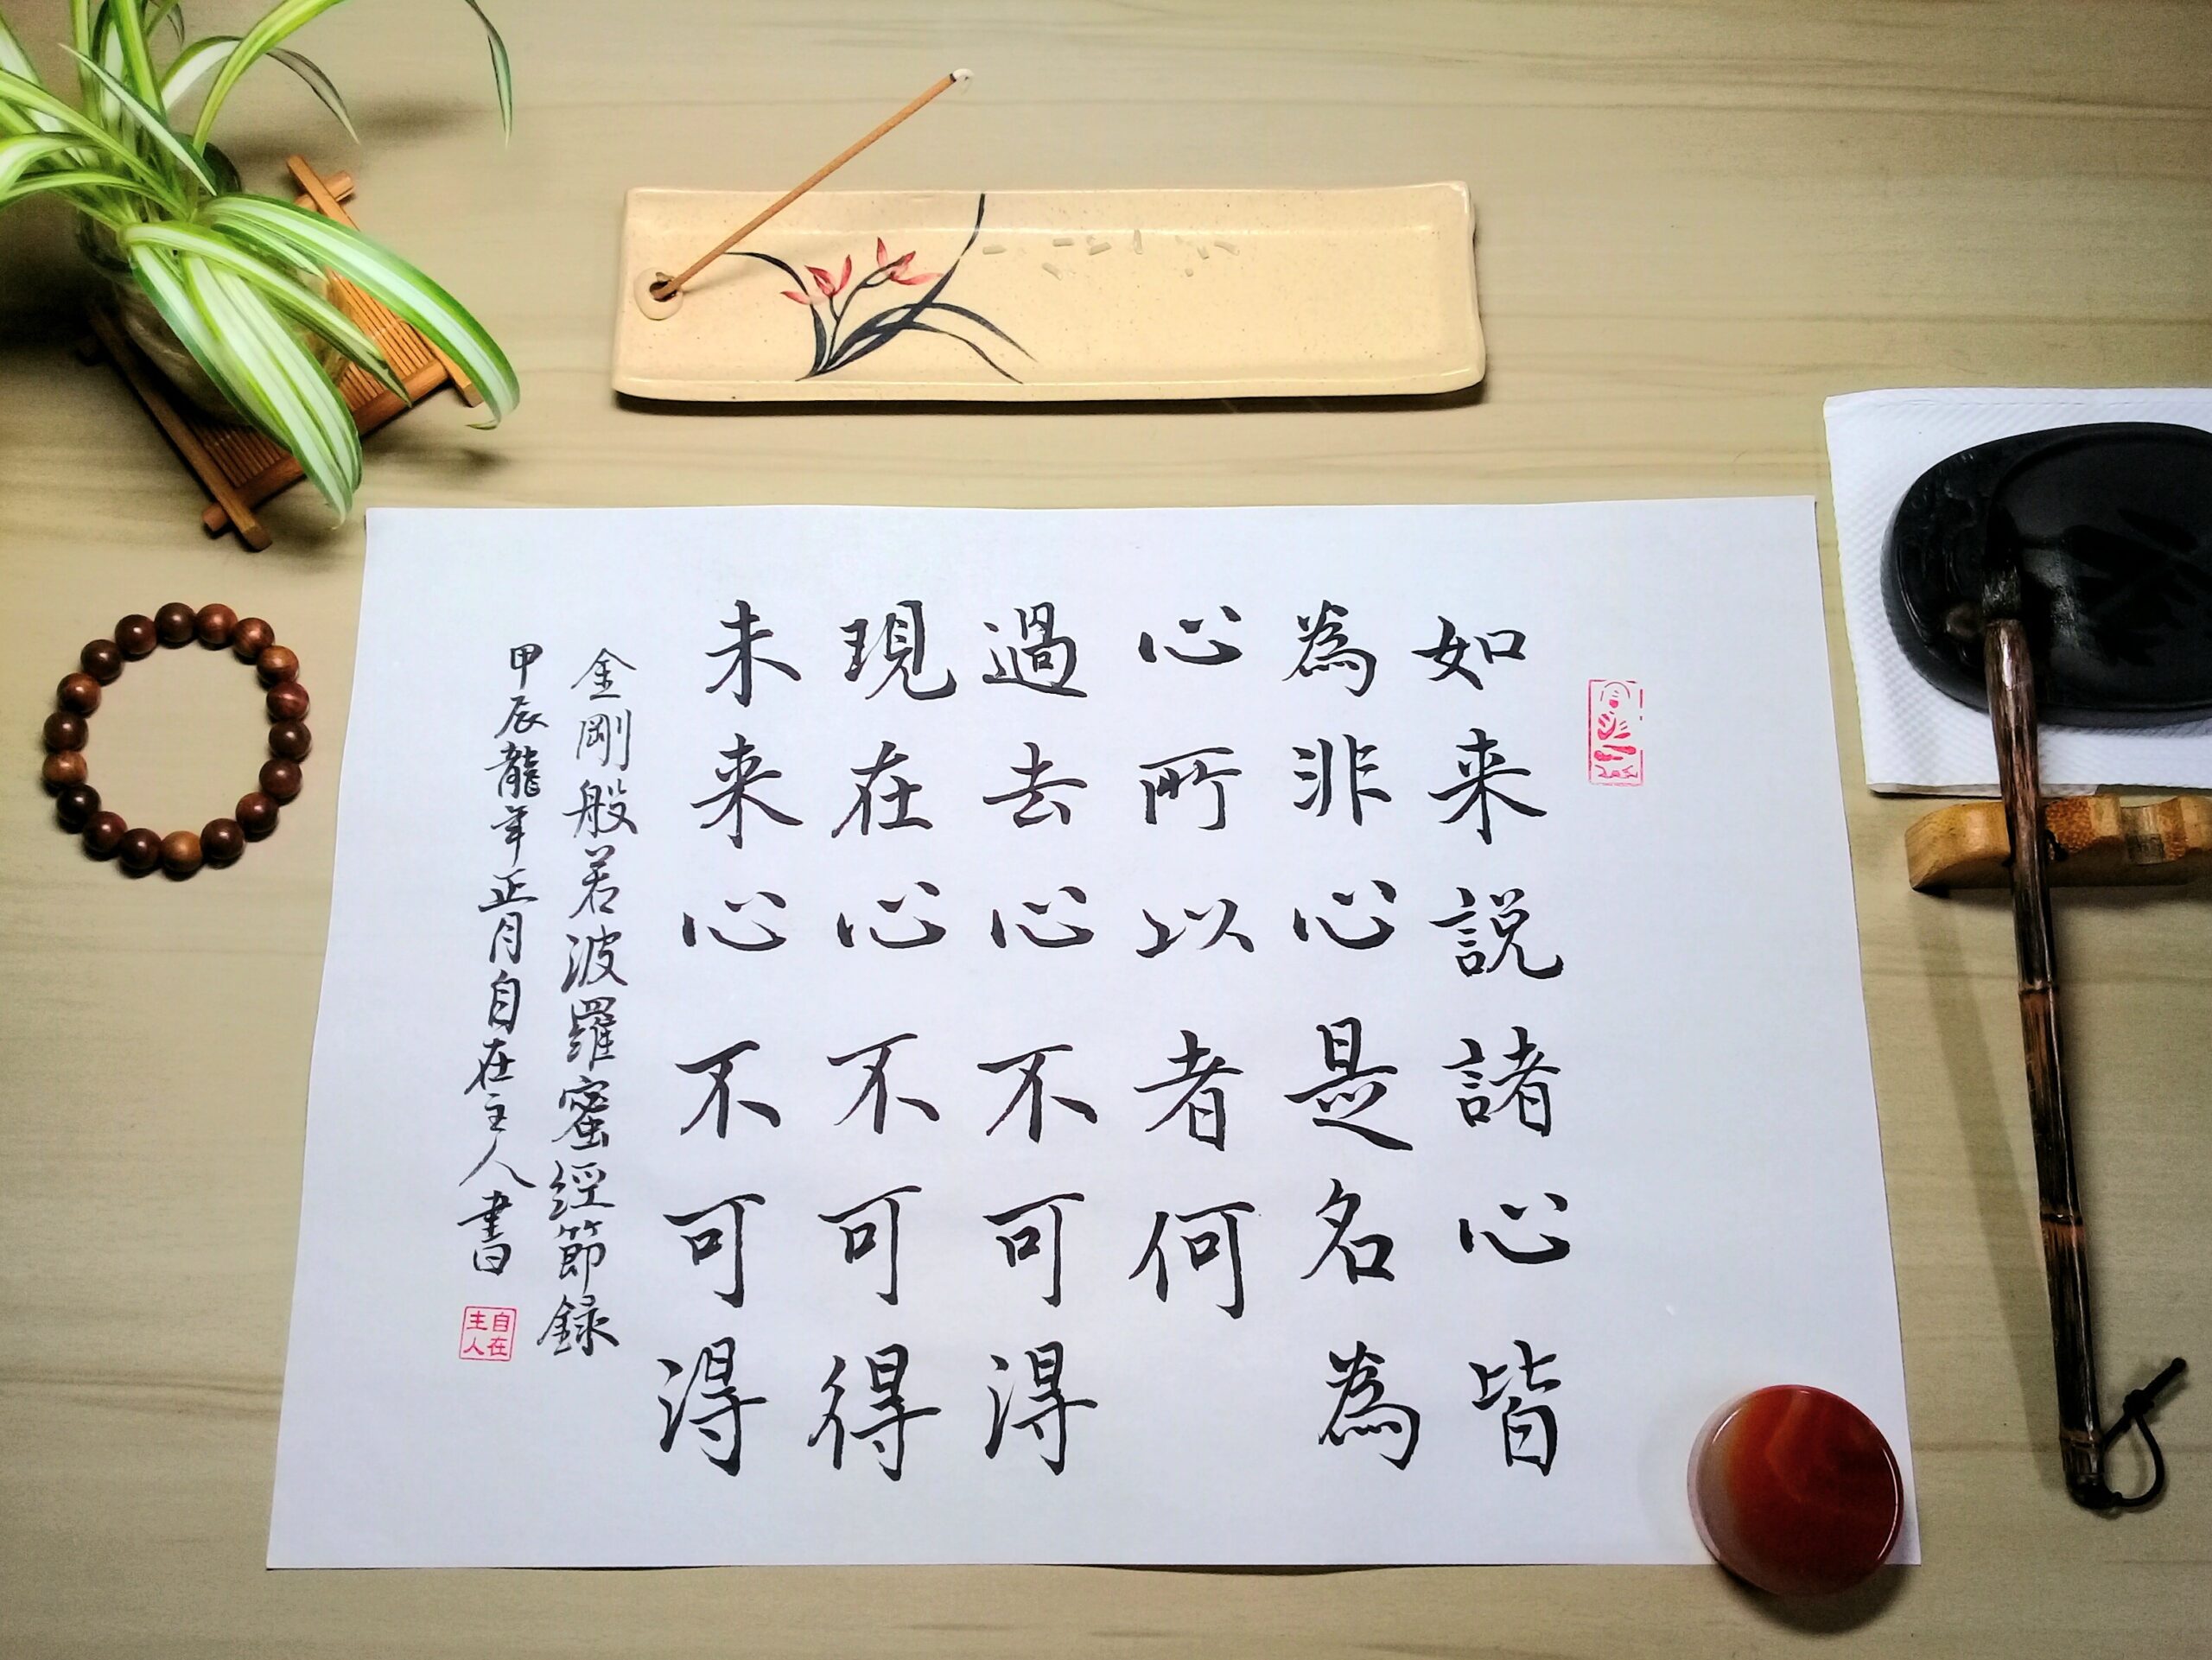 如来説諸心皆
為非心是名為
心所以者何
過去心不可得
現在心不可得
未来心不可得
金剛般若波羅蜜經節録
甲辰龍年正月自在主人書
自在
主人